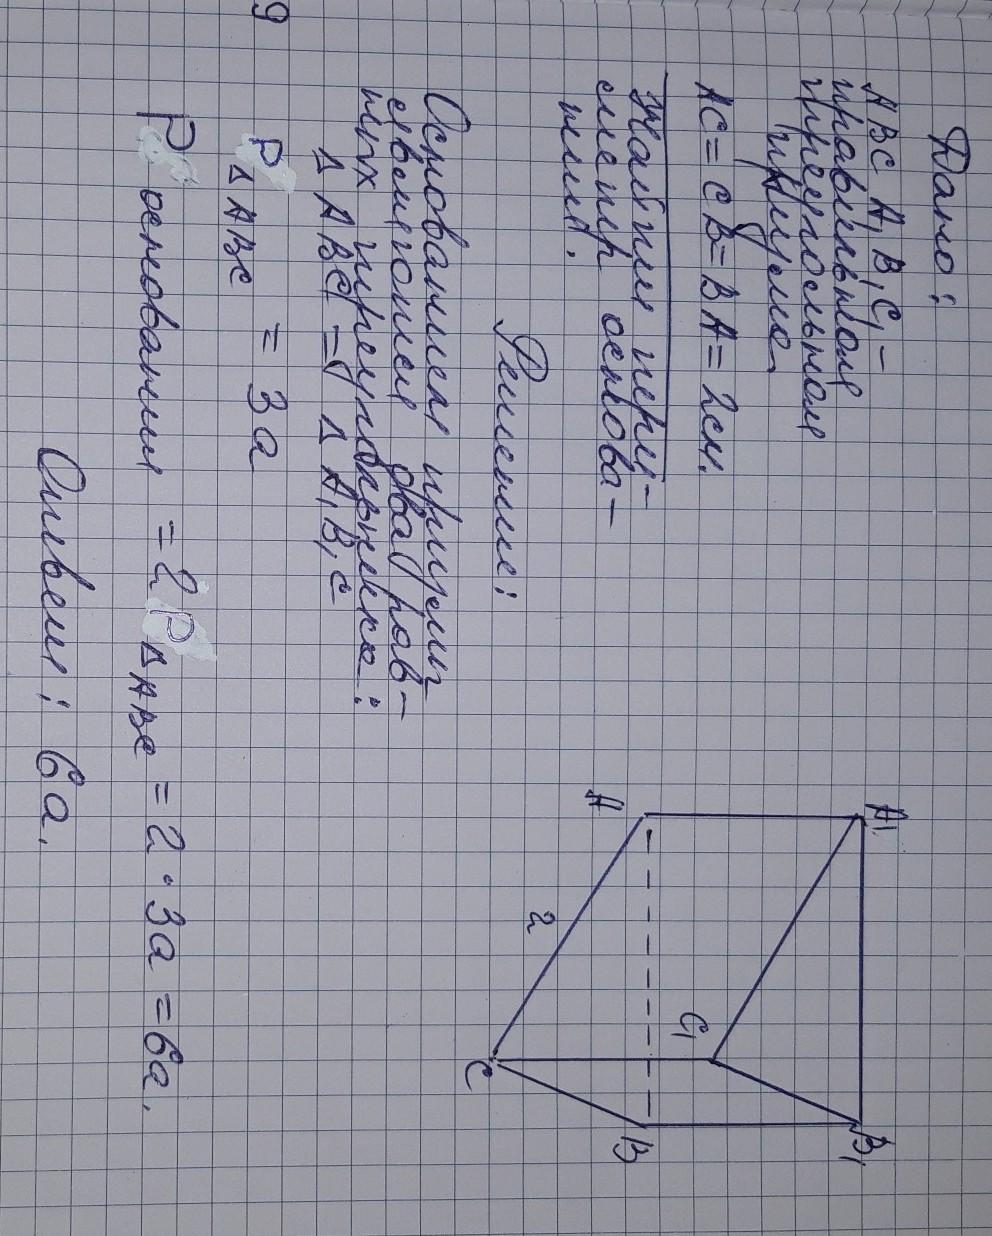 Дано:
ABC A₁B₁C₁ –
правильная
треугольная
призма
AC = CB = BA = 2см.
Найти пери–
метр основа–
ний.
Решение:
Основания призмы
являются два рав–
ных треугольника:
Δ ABC = Δ A₁B₁C
P Δ ABC = 3a
P основания = 2P Δ ABC = 2 · 3a = 6a.
Ответ: 6a.
A₁
B₁
C₁
A
2
B
C
9